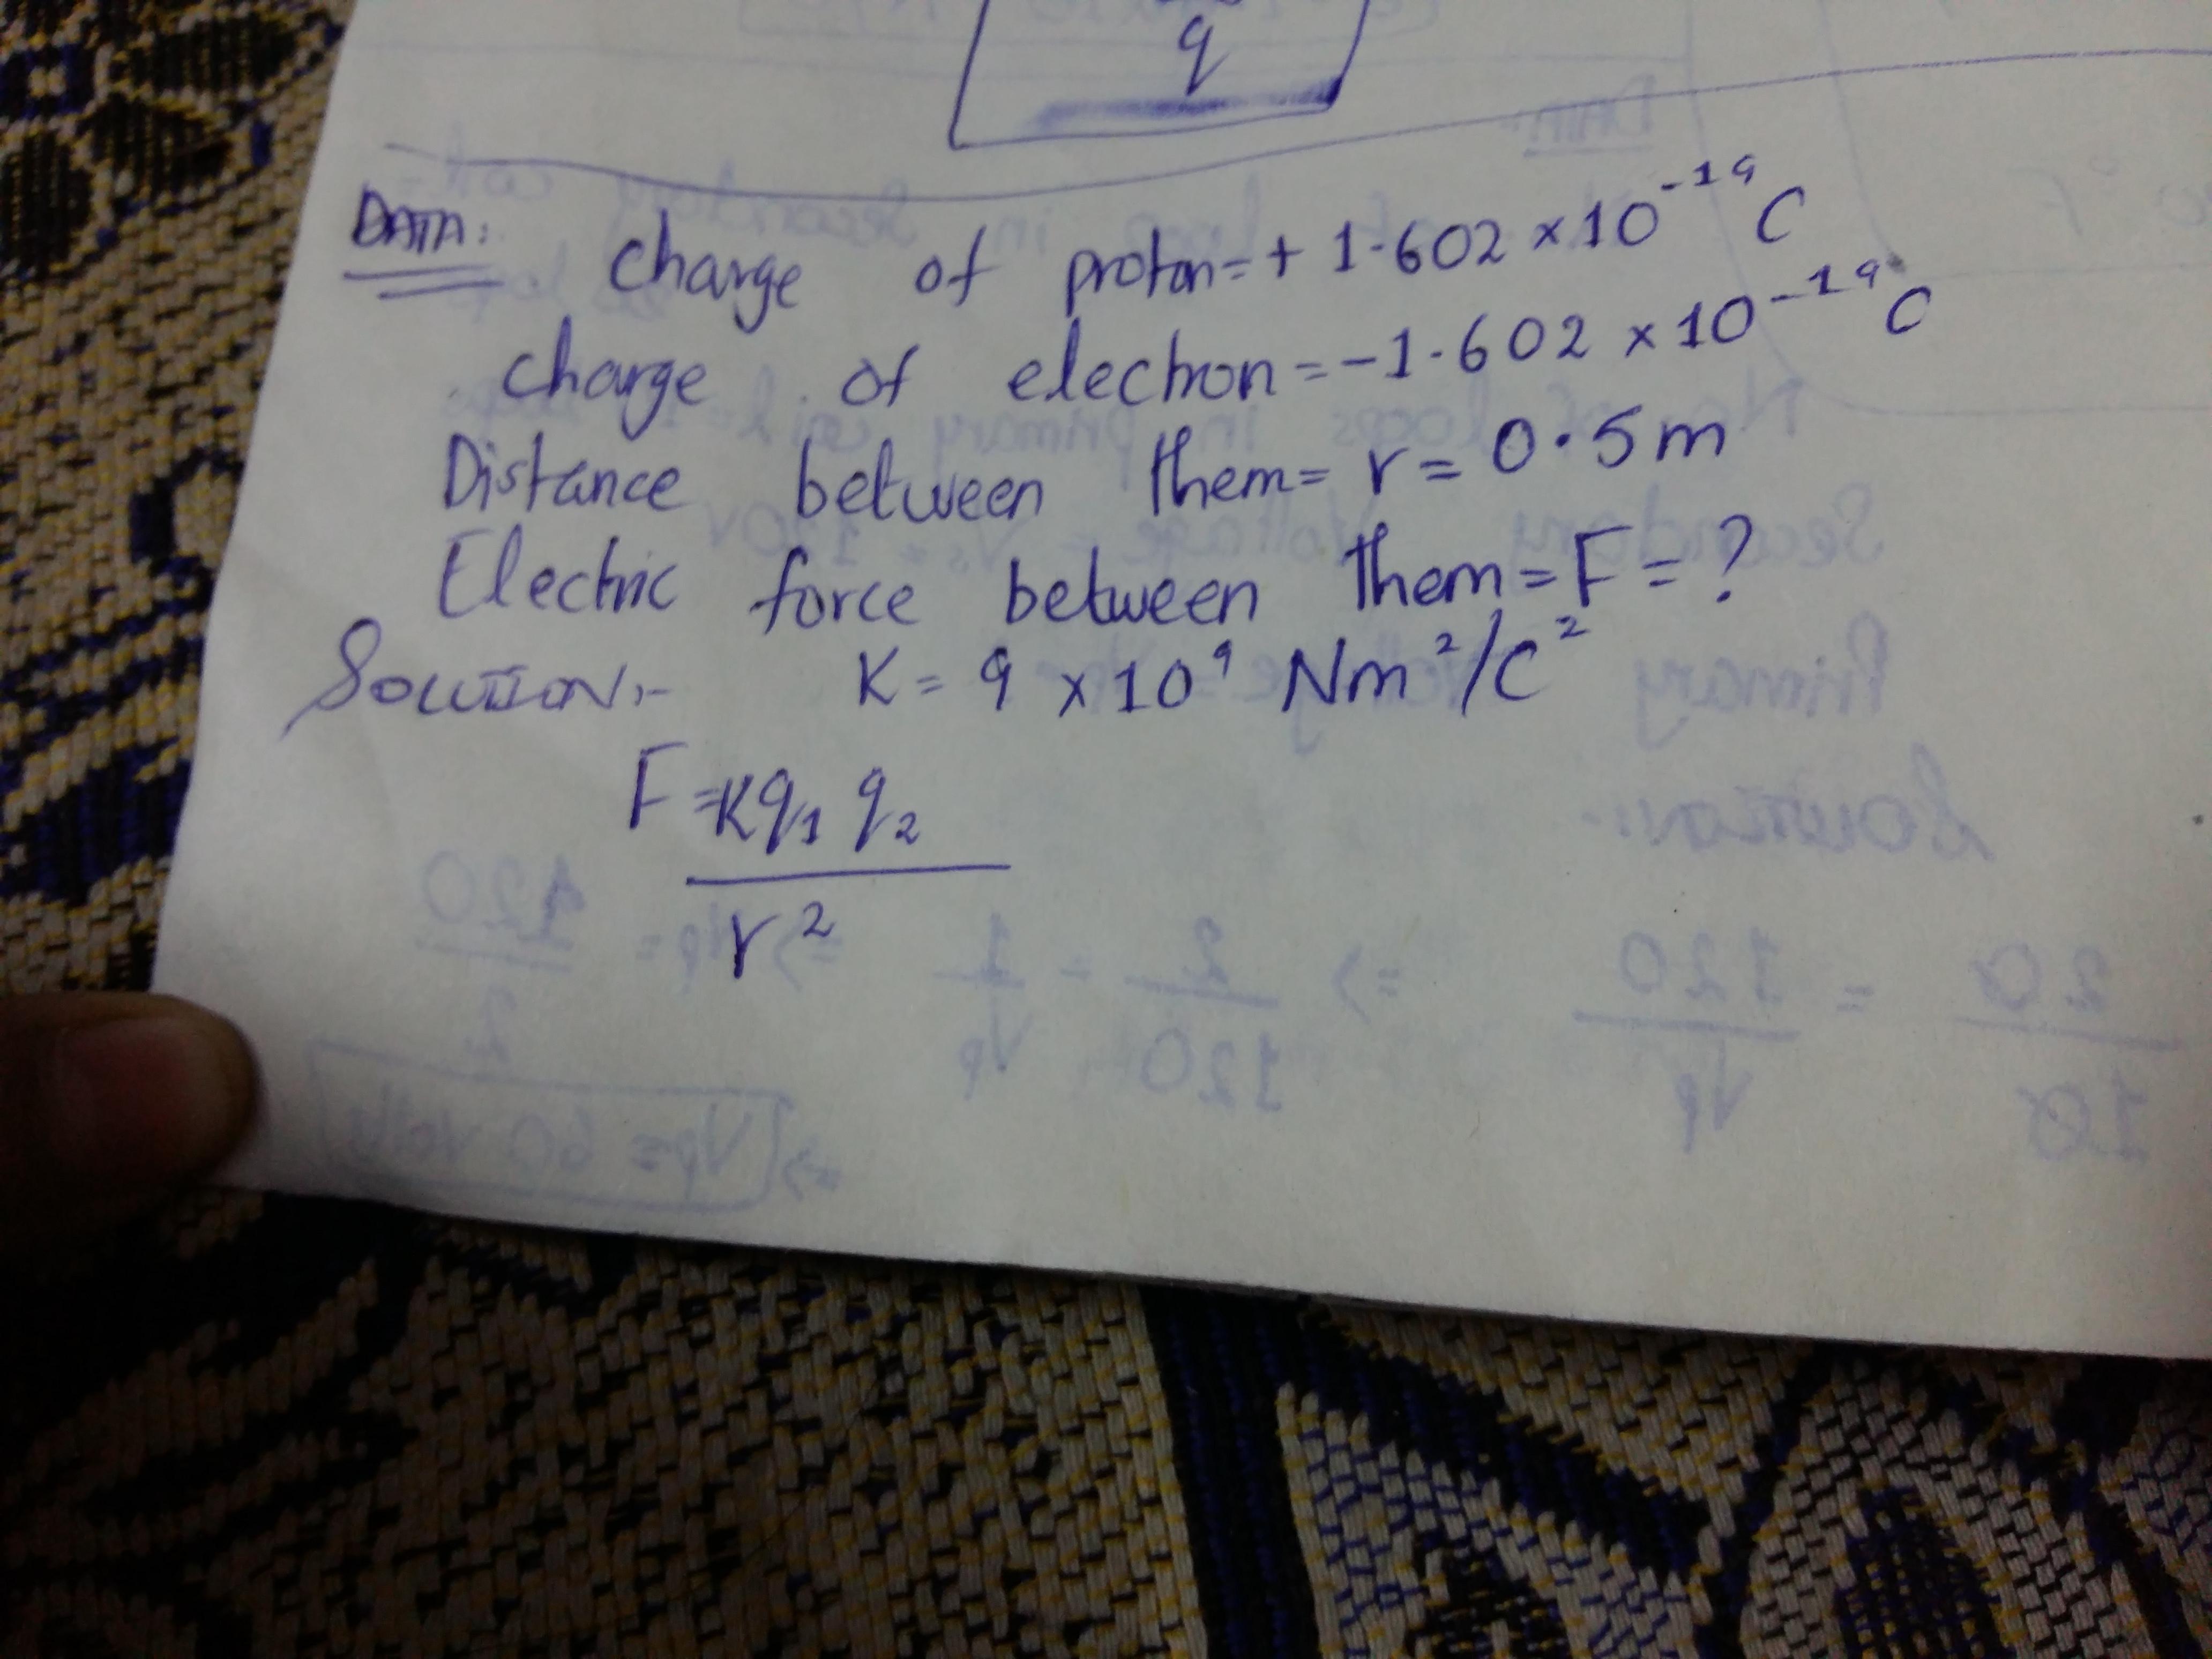 q
DATA: Charge of proton = + 1.602 × 10⁻¹⁹ C
Charge of electron = -1.602 × 10⁻¹⁹ C
Distance between them = r = 0.5 m
Electric force between them = F = ?
SOLUTION:- K = 9 × 10⁹ Nm²/C²
F = Kq₁ q₂
r²